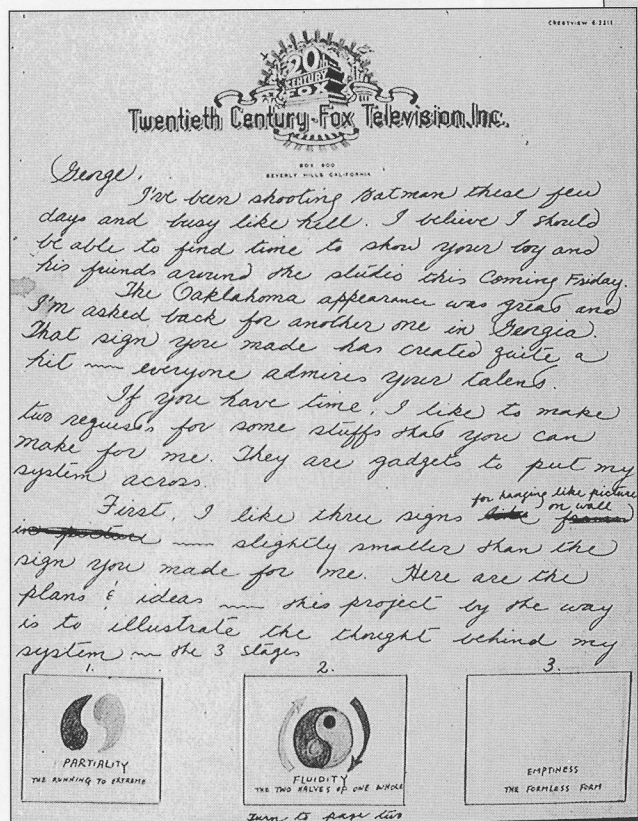 CRESTVIEW 6-2211
20th
CENTURY
FOX
Twentieth Century-Fox Television, Inc.
BOX 900
BEVERLY HILLS CALIFORNIA
George,
I've been shooting Batman these few
days and busy like hell. I believe I should
be able to find time to show your boy and
his friends around the studio this coming Friday.
The Oaklahoma appearance was great and
I'm asked back for another one in Georgia.
That sign you made has created quite a
hit — everyone admires your talent.
If you have time, I like to make
two requests for some stuffs that you can
make for me. They are gadgets to put my
system across.
for hanging like picture
First, I like three signs on wall
— slightly smaller than the
sign you made for me. Here are the
plans & ideas — this project by the way
is to illustrate the thought behind my
system — the 3 stages
1. 2. 3.
PARTIALITY
THE RUNNING TO EXTREME
FLUIDITY
THE TWO HALVES OF ONE WHOLE
EMPTINESS
THE FORMLESS FORM
Turn to page two